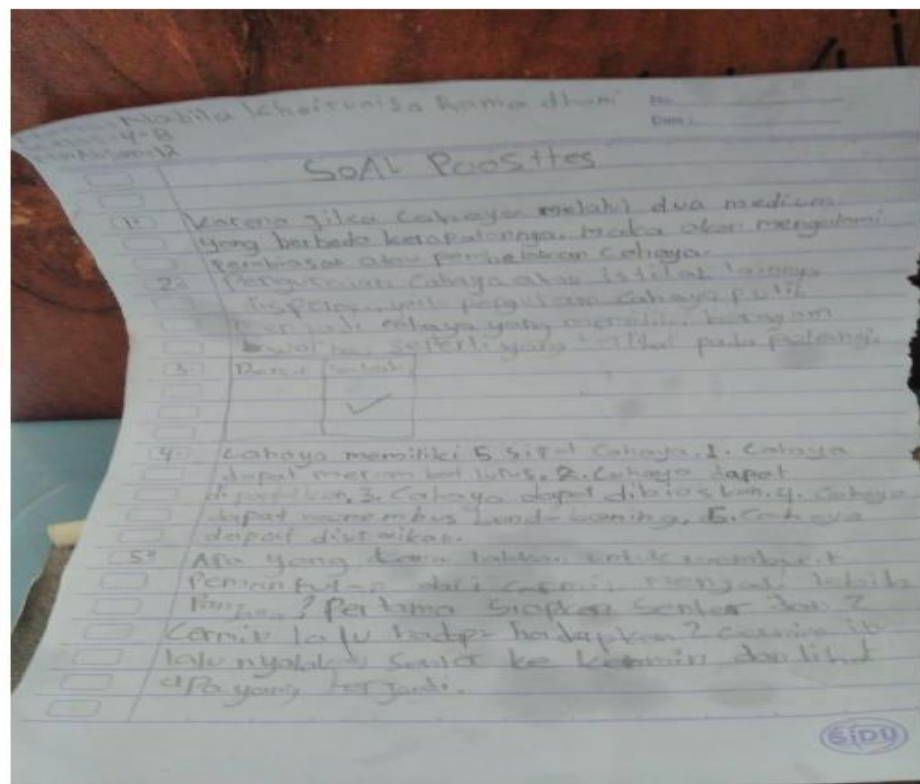 Nabila Khoirunisa Ramadhani
No.
Date :
4-B
12
SOAL PooSttes
1. Karena jika cahaya melalui dua medium
yang berbeda kerapatannya, maka akan mengalami
pembiasan atau pembelokan cahaya.
2. Penguraian cahaya atau istilah lainnya
dispersi, yaitu penguraian cahaya putih
menjadi cahaya yang memiliki beragam
warna seperti yang terlihat pada pelangi.
3. Benar Salah
✓
4. Cahaya memiliki 5 sifat cahaya. 1. Cahaya
dapat merambat lurus. 2. Cahaya dapat
dipantulkan. 3. Cahaya dapat dibiaskan. 4. Cahaya
dapat menembus benda bening. 5. Cahaya
dapat diuraikan.
5. Apa yang lakukan untuk membuat
Pemantulan dari cermin menjadi lebih
? Pertama siapkan senter dan 2
cermin lalu hadap-hadapkan 2 cermin itu
lalu nyalakan senter ke kermin dan lihat
apa yang terjadi.
SIDU